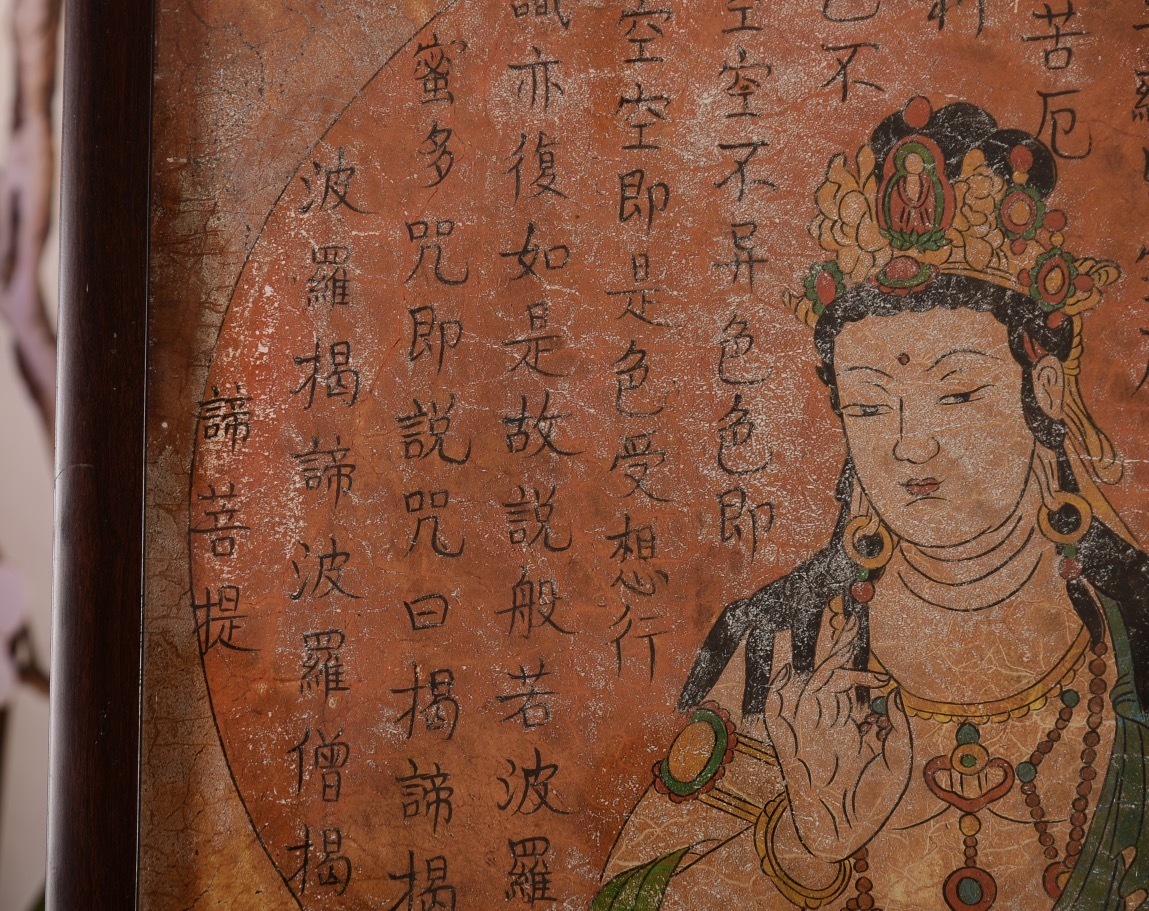 苦厄
不
空空不异色色即
空空即是色受想行
識亦復如是故説般若波羅
蜜多咒即説咒曰揭諦揭
波羅揭諦波羅僧揭
諦菩提